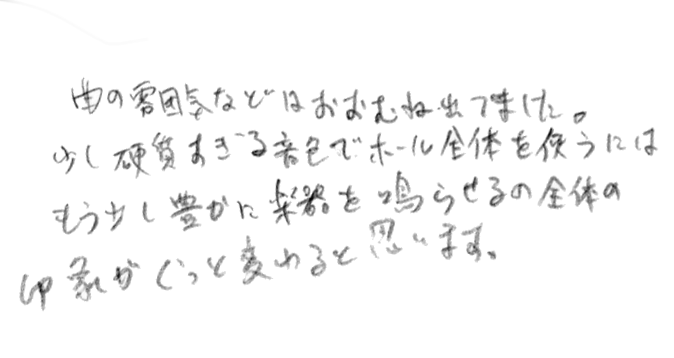 曲の雰囲気などはおおむね出てました。
少し硬質すぎる音色でホール全体を使うには
もう少し豊かに楽器を鳴らせるの全体の
印象がぐっと変わると思います。